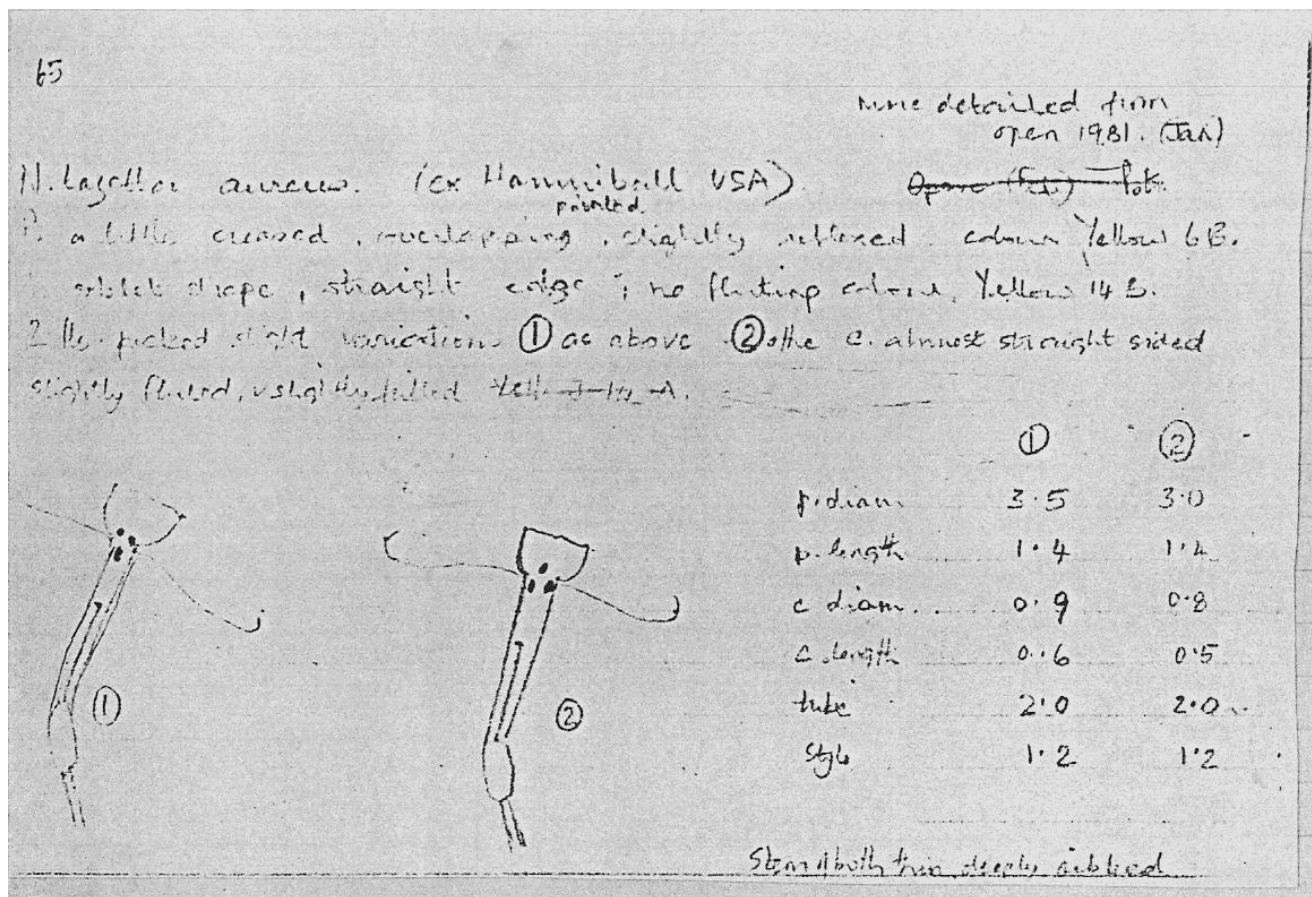 65
more detailed from
open 1981. (Jan)
N. tazettae aureus. (ex Hanniball USA). Open (Feb) Pot.
pointed
P. a little creased, overlapping, slightly reflexed colour Yellow 6B.
goblet shape, straight edge; no fluting colour, Yellow 14 B.
2 fls. picked slight variation ① as above ② the c. almost straight sided
slightly fluted, v slightly frilled
① ②
p. diam 3.5 3.0
p. length 1.4 1.4
c diam. 0.9 0.8
c. length 0.6 0.5
tube 2.0 2.0
style 1.2 1.2
①
②
Stem of both thin, deeply ribbed